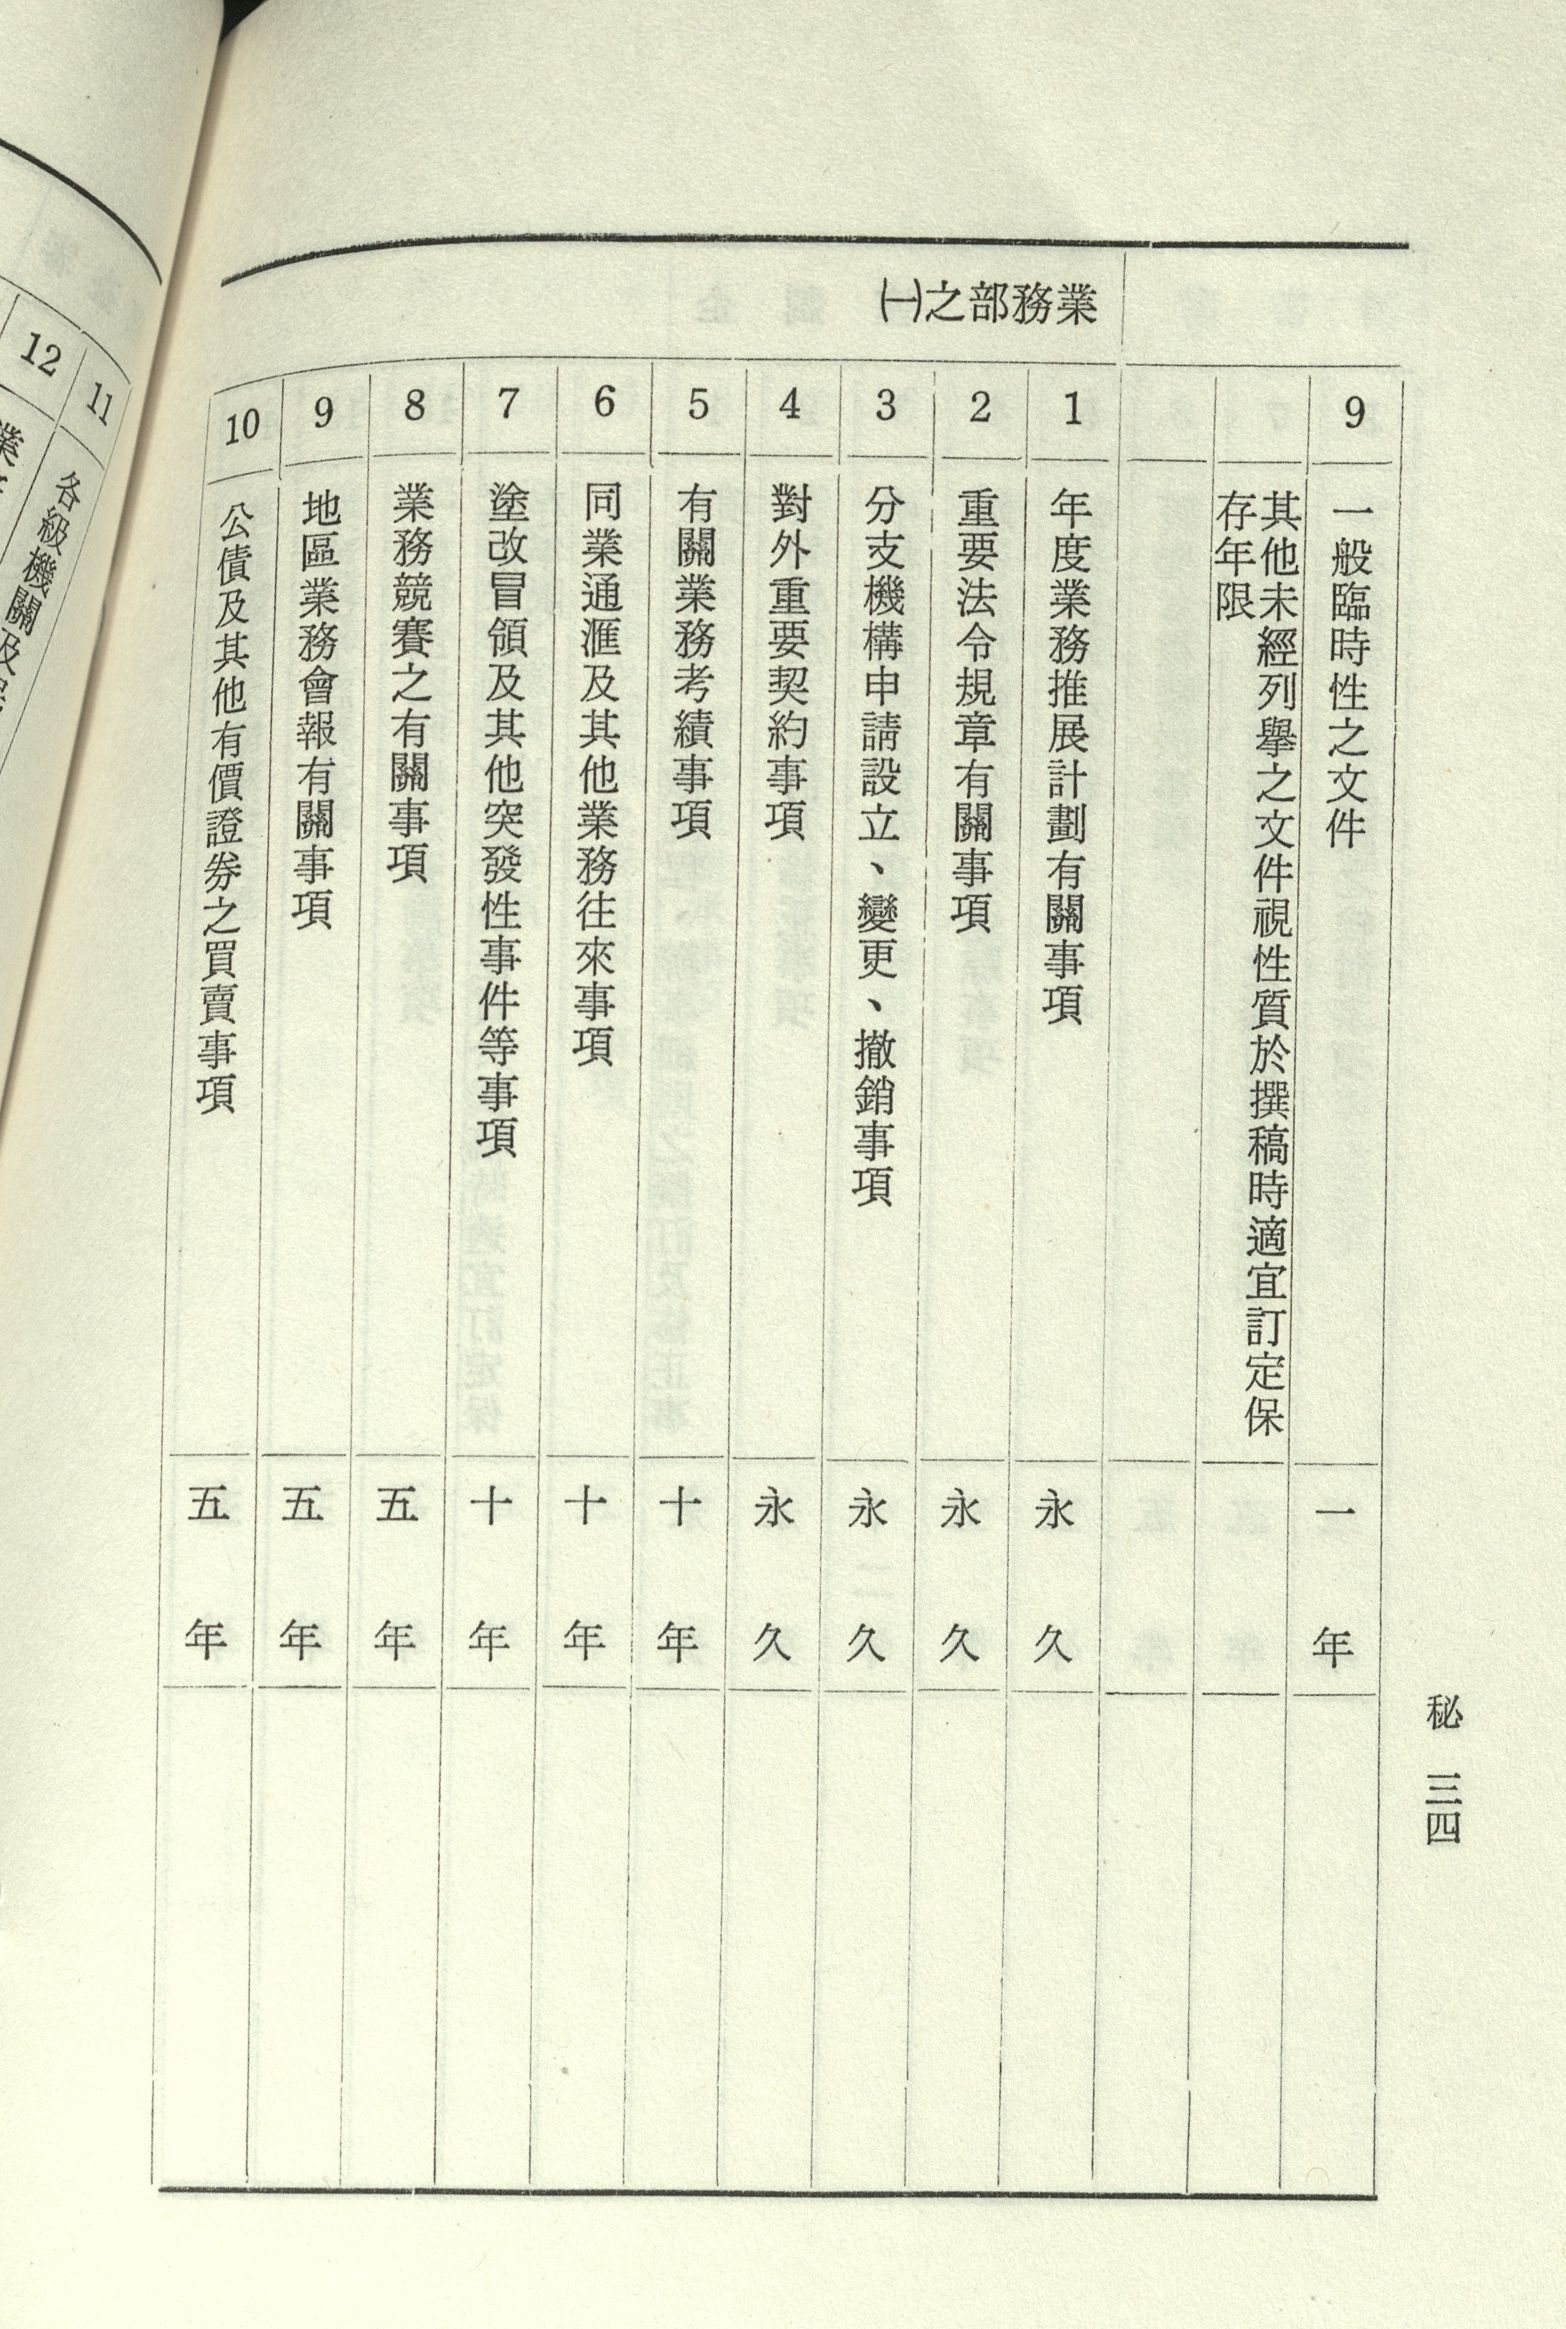 秘 三四
9
一般臨時性之文件
一年
其他未經列舉之文件視性質於撰稿時適宜訂定保
存年限
業務部之㈠
1
年度業務推展計劃有關事項
永久
2
重要法令規章有關事項
永久
3
分支機構申請設立、變更、撤銷事項
永久
4
對外重要契約事項
永久
5
有關業務考績事項
十年
6
同業通滙及其他業務往來事項
十年
7
塗改冒領及其他突發性事件等事項
十年
8
業務競賽之有關事項
五年
9
地區業務會報有關事項
五年
10
公債及其他有價證券之買賣事項
五年
11
各級機關及
12
業